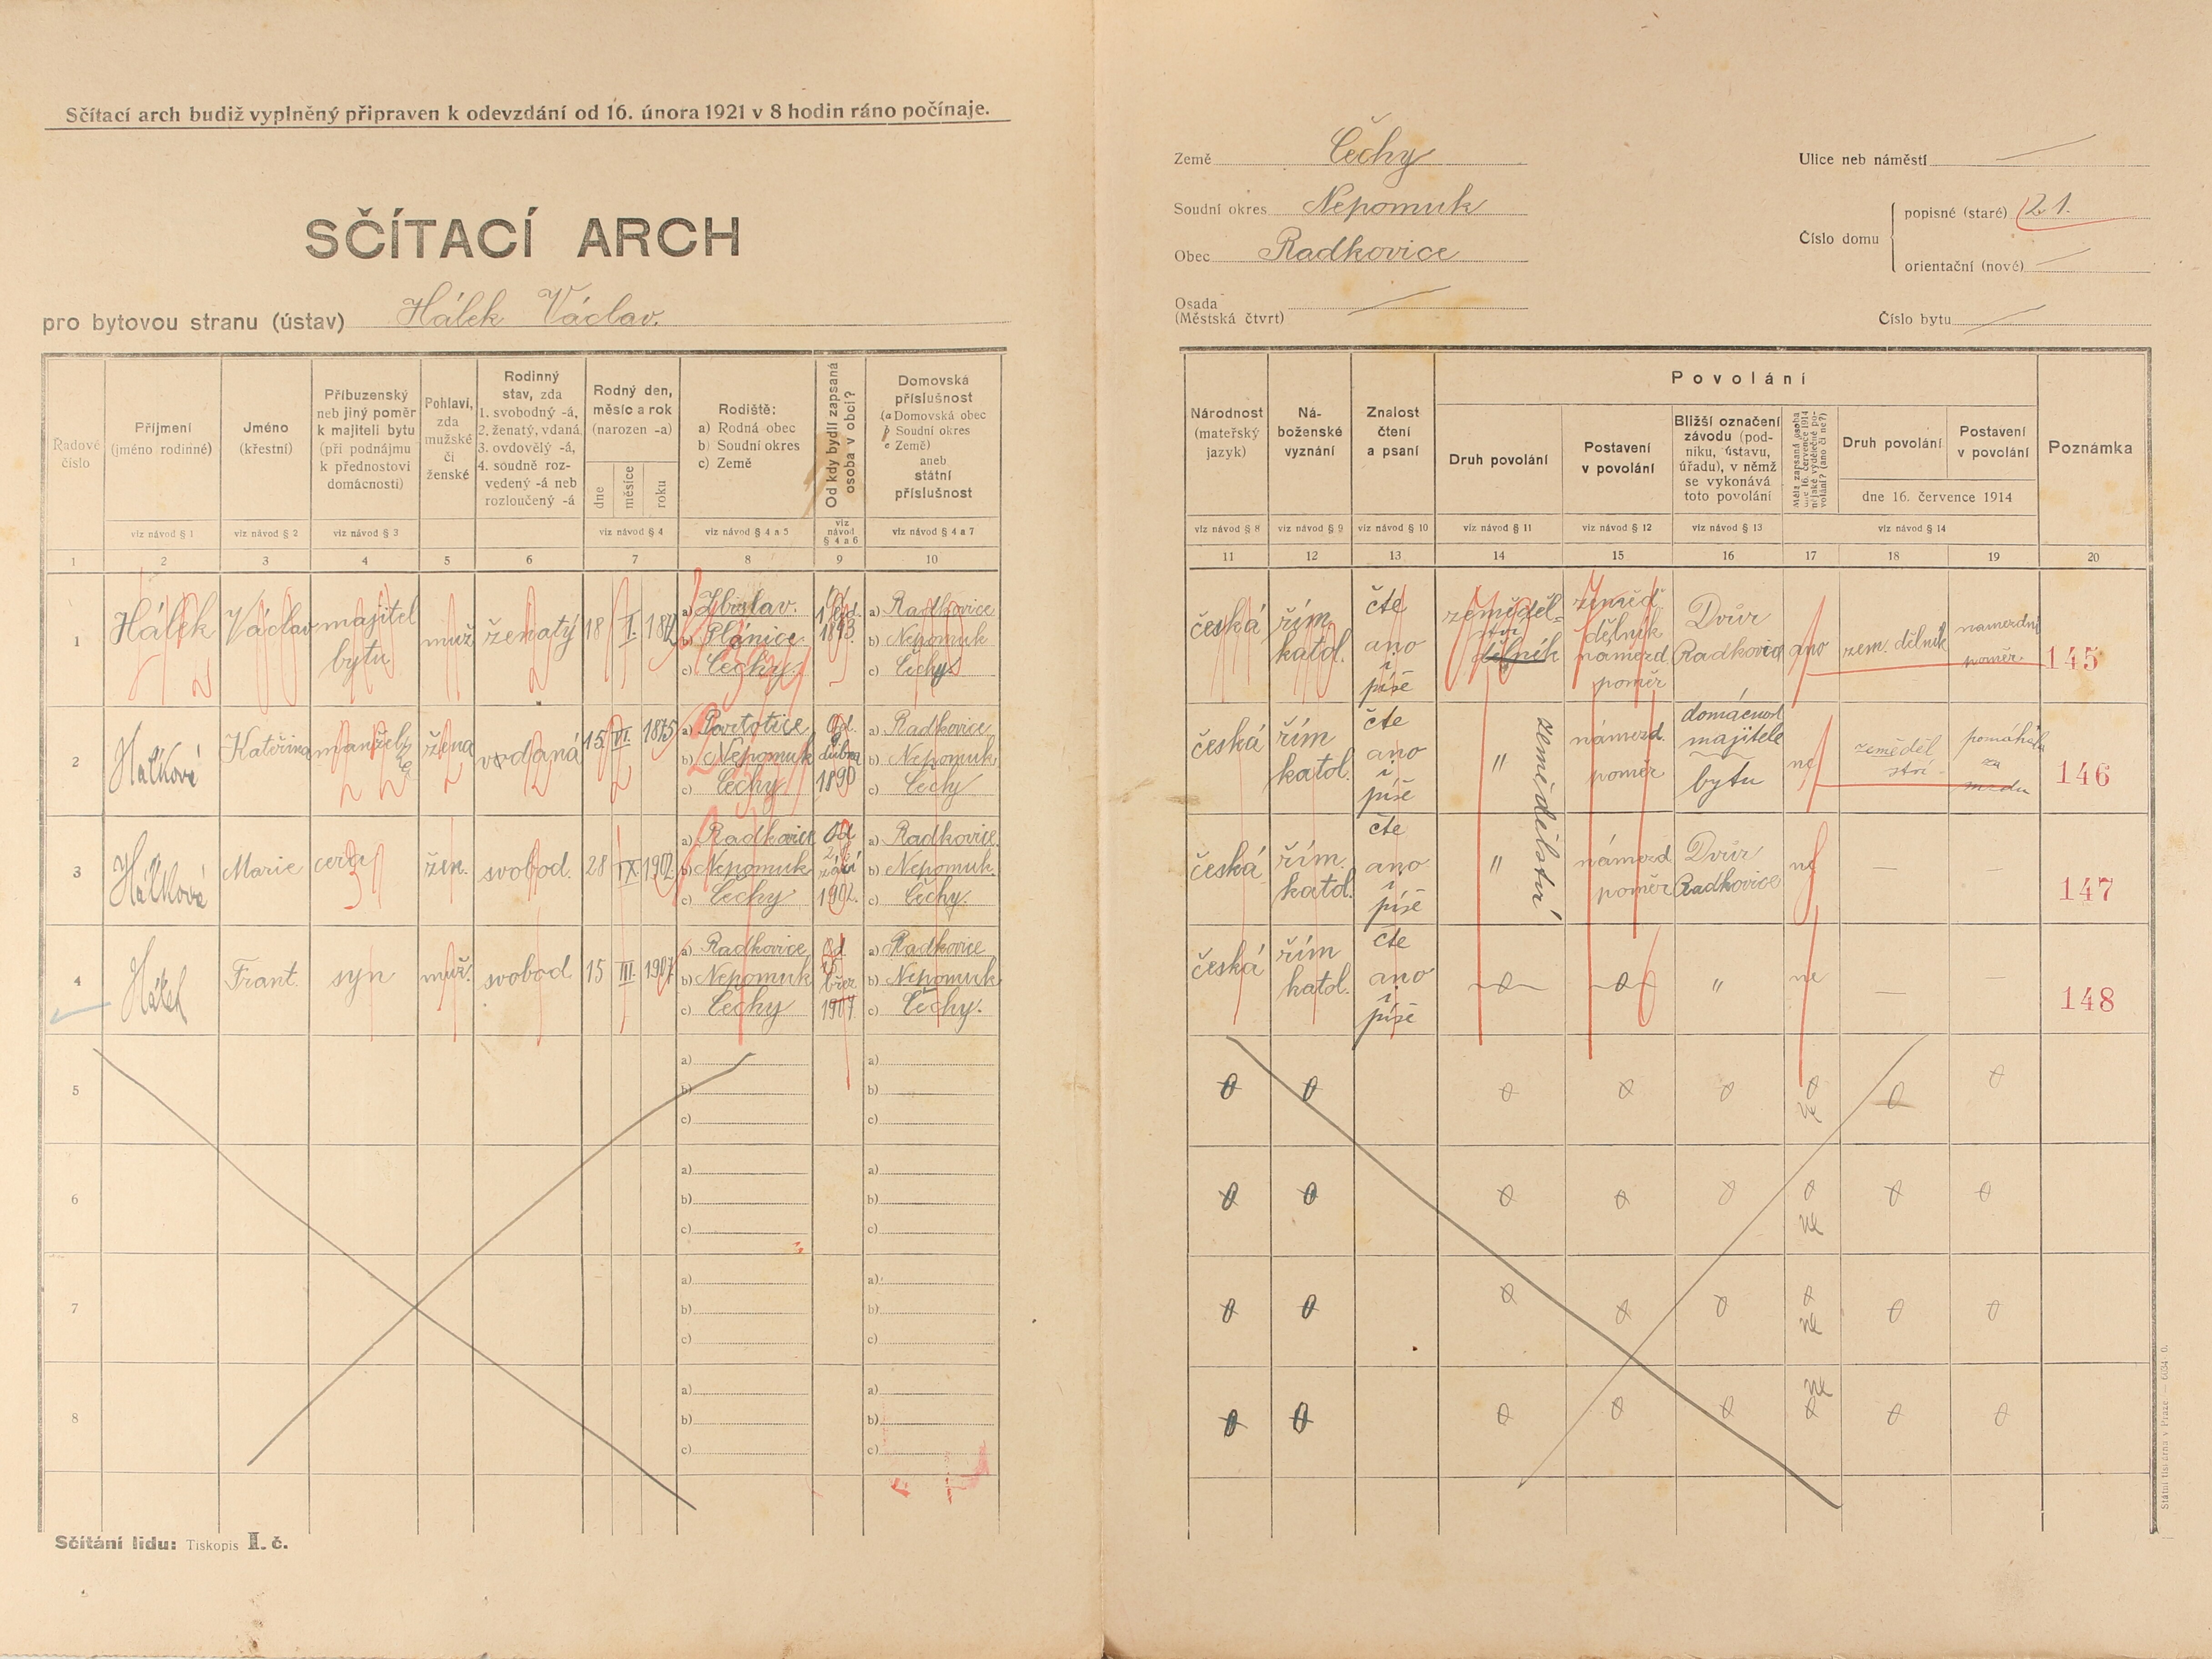 Sčítací arch budiž vyplněný připraven k odevzdání od 16. února 1921 v 8 hodin ráno počínaje.
SČÍTACÍ ARCH
pro bytovou stranu (ústav) Hálek Václav.
Země Čechy
Soudní okres Nepomuk
Obec Radkovice
Osada
(Městská čtvrt)
Ulice neb náměstí
Číslo domu
popisné (staré) 21.
orientační (nové)
Číslo bytu
Řadové číslo
Příjmení (jméno rodinné)
Jméno (křestní)
Příbuzenský neb jiný poměr k majiteli bytu (při podnájmu k přednostovi domácnosti)
Pohlaví, zda mužské či ženské
Rodinný stav, zda 1. svobodný -á, 2. ženatý, vdaná, 3. ovdovělý -á, 4. soudně rozvedený -á neb rozloučený -á
Rodný den, měsíc a rok (narozen -a)
dne měsíce roku
Rodiště: a) Rodná obec b) Soudní okres c) Země
Od kdy bydlí zapsaná osoba v obci?
Domovská příslušnost (a Domovská obec b Soudní okres c Země) aneb státní příslušnost
Národnost (mateřský jazyk)
Náboženské vyznání
Znalost čtení a psaní
Povolání
Druh povolání
Postavení v povolání
Bližší označení závodu (podniku, ústavu, úřadu), v němž se vykonává toto povolání
Měla zapsaná osoba dne 16. července 1914 nějaké výdělečné povolání? (ano či ne?)
Druh povolání
Postavení v povolání
dne 16. července 1914
Poznámka
viz návod § 1 viz návod § 2 viz návod § 3 viz návod § 4 viz návod § 4 a 5 viz návod § 4 a 6 viz návod § 4 a 7
viz návod § 8 viz návod § 9 viz návod § 10 viz návod § 11 viz návod § 12 viz návod § 13 viz návod § 14
1 2 3 4 5 6 7 8 9 10
11 12 13 14 15 16 17 18 19 20
1 Hálek Václav majitel bytu muž ženatý 18 I.
a) Zbislav.
b) Plánice
c) Čechy
1893.
a) Radkovice
b) Nepomuk
c) Čechy
česká řím. katol. čte ano i píše
zemědělství dělník
zeměd. dělník námezd. poměr
Dvůr Radkovice
ano zem. dělník námezdní poměr. 145
2 Hálková Kateřina manželka žena vdaná 15 VI. 1875
b) Nepomuk
c) Čechy
od dubna 1890
a) Radkovice
b) Nepomuk
c) Čechy
česká řím katol. čte ano i píše
" zemědělství
námezd. poměr
domácnost majitele bytu
ne zemědělství pomáhala za mzdu 146
3 Hálková Marie žen. svobod. 28 IX. 1902
a) Radkovice
b) Nepomuk
c) Čechy
Od září 1902.
a) Radkovice.
b) Nepomuk.
c) Čechy.
česká řím. katol. čte ano i píše
" námezd poměr
Dvůr Radkovice
ne — — 147
4 Hálek Frant. syn muž. svobod. 15 III. 1907
a) Radkovice
b) Nepomuk
c) Čechy
Od břez. 1907.
a) Radkovice
b) Nepomuk
c) Čechy.
česká řím katol. čte ano i píše
" ne — — 148
5
a)
b)
c)
a)
b)
c)
0 0 0 0 0 0 ne 0 0
6
a)
b)
c)
a)
b)
c)
0 0 0 0 0 0 ne 0 0
7
a)
b)
c)
a)
b)
c)
0 0 0 0 0 0 ne 0 0
8
a)
b)
c)
a)
b)
c)
0 0 0 0 0 ne 0 0 0
Sčítání lidu: Tiskopis I. č.
Státní tiskárna v Praze — 6034-0.